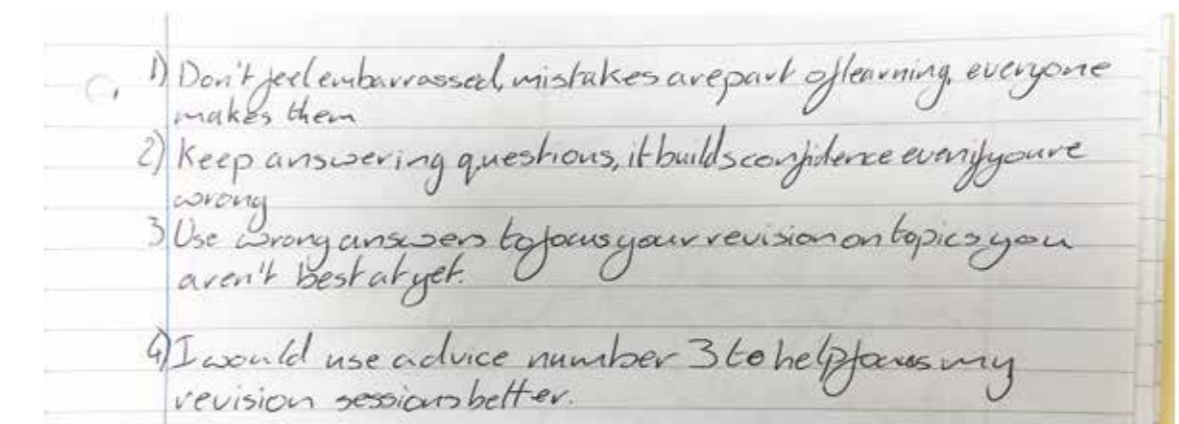 1) Don't feel embarrassed, mistakes are part of learning, everyone
makes them
2) Keep answering questions, it builds confidence even if youre
wrong
3 Use wrong answers to focus your revision on topics you
aren't best at yet.
4) I would use advice number 3 to help focus my
revision sessions better.